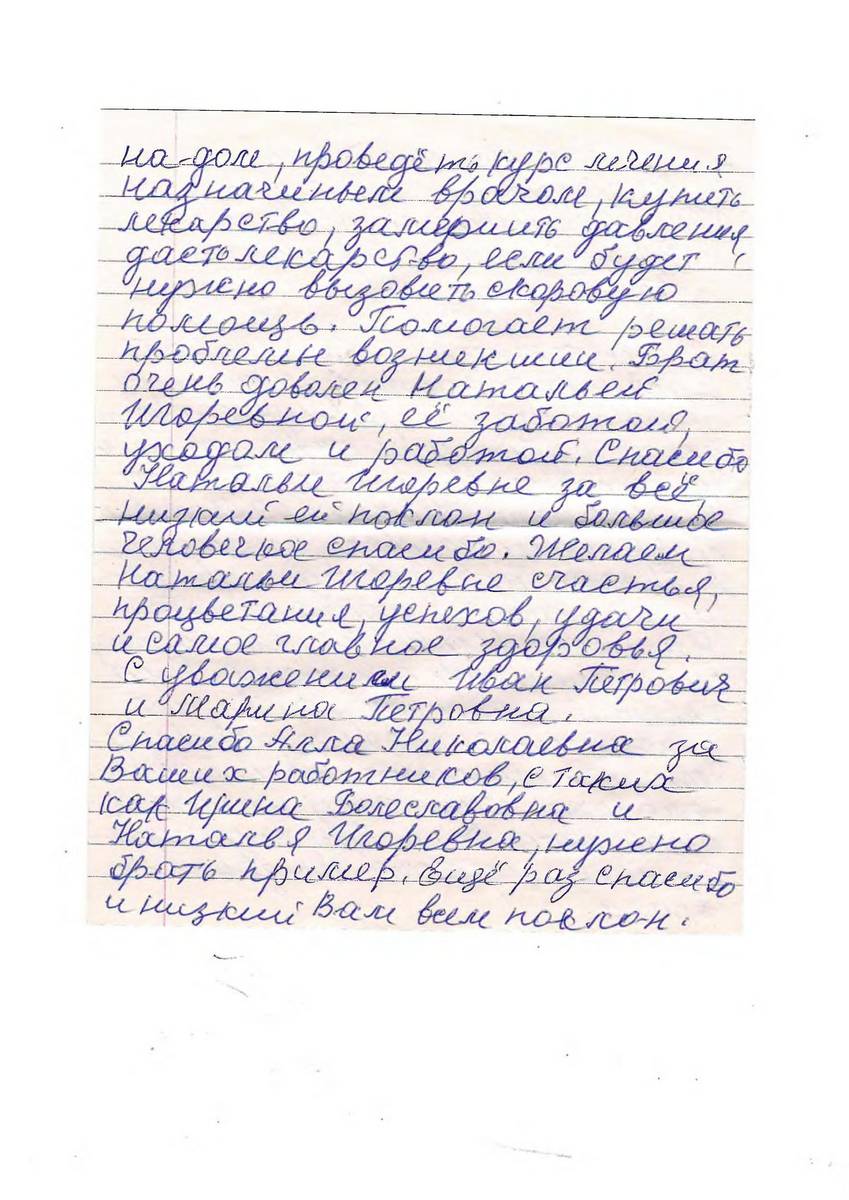 на-дом, проведёть курс лечения
назначиньем врачом, купить
лекарство, замерить давления
дастьлекарство, если будет
нужно вызовить скоровую
помощь. Помогает решать
проблемы возникшии. Брат
очень доволен Натальей
Игоревной, её заботой,
уходам и работой. Спасибо
Натальи Игоревне за всё,
низкий ей поклон и большое
человечкое спасибо. Желаем
Натальи Игоревне счастья,
процветания, успехов, удачи
и самое главное здоровья.
С уважением Иван Петрович
и Марина Петровна.
Спасибо Алла Николаевна за
Ваших работников, с таких
как Ирина Болеславовна и
Наталья Игоревна, нужно
брать пример. Ещё раз спасибо
и низкий Вам всем поклон.